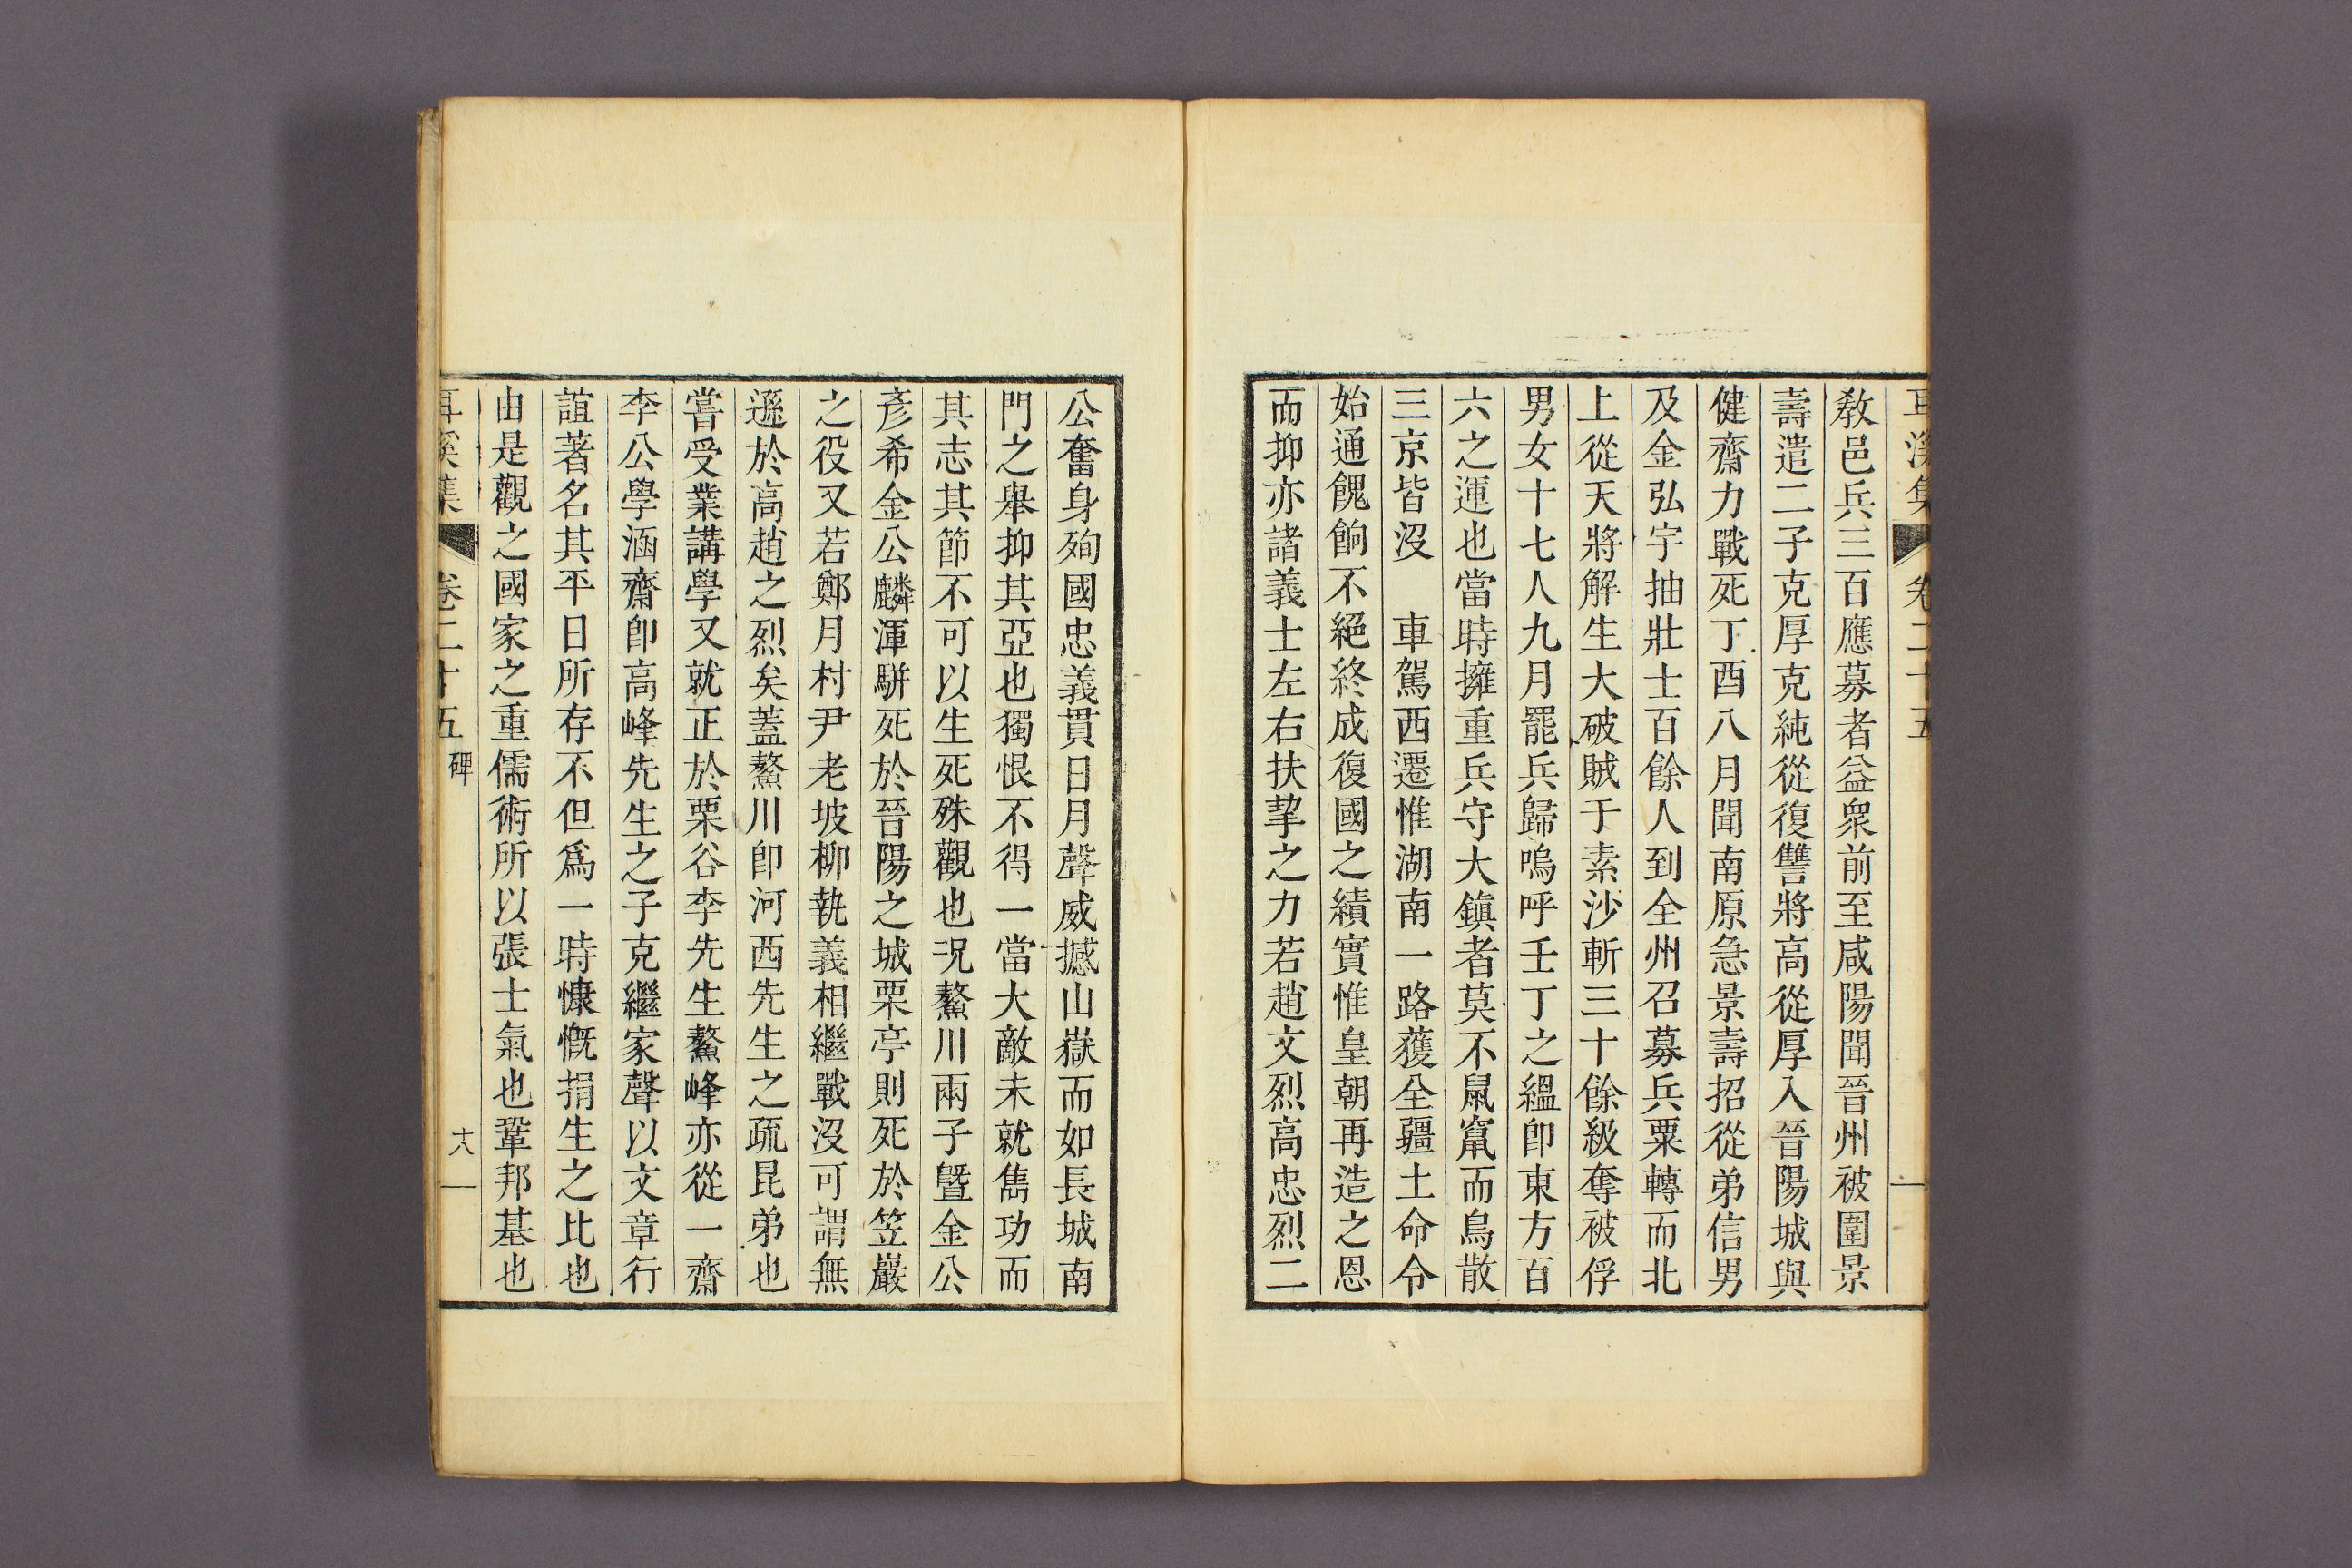 耳溪集 卷二十五
教邑兵三百應募者益衆前至咸陽聞晉州被圍景
壽遣二子克厚克純從復讐將高從厚入晉陽城與
健齋力戰死丁酉八月聞南原急景壽招從弟信男
及金弘宇抽壯士百餘人到全州召募兵粟轉而北
上從天將解生大破賊于素沙斬三十餘級奪被俘
男女十七人九月罷兵歸嗚呼壬丁之縕卽東方百
六之運也當時擁重兵守大鎭者莫不鼠竄而鳥散
三京皆沒　車駕西遷惟湖南一路獲全疆土命令
始通餽餉不絕終成復國之績實惟皇朝再造之恩
而抑亦諸義士左右扶挈之力若趙文烈高忠烈二
公奮身殉國忠義貫日月聲威撼山嶽而如長城南
門之舉抑其亞也獨恨不得一當大敵未就雋功而
其志其節不可以生死殊觀也況鰲川兩子曁金公
彥希金公麟渾騈死於晉陽之城栗亭則死於笠巖
之役又若鄭月村尹老坡柳執義相繼戰沒可謂無
遜於高趙之烈矣蓋鰲川卽河西先生之疏昆弟也
嘗受業講學又就正於栗谷李先生鰲峰亦從一齋
李公學涵齋卽高峰先生之子克繼家聲以文章行
誼著名其平日所存不但爲一時慷慨捐生之比也
由是觀之國家之重儒術所以張士氣也鞏邦基也
耳溪集 卷二十五 碑 十八